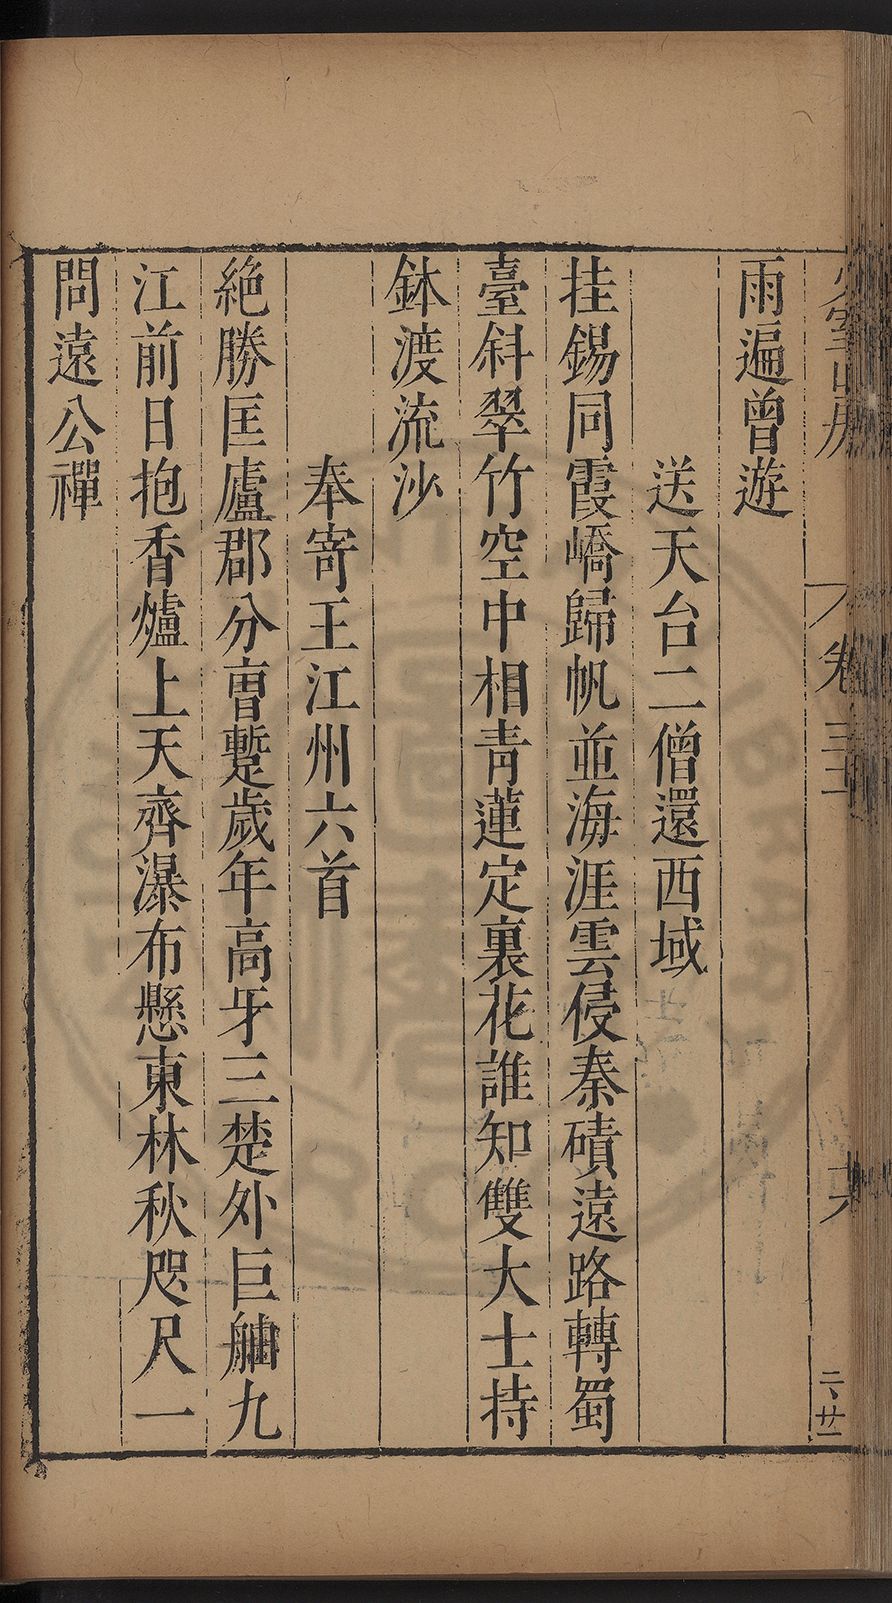 雨遍曾遊
送天台二僧還西域
挂錫同霞嶠歸帆並海涯雲侵秦磧遠路轉蜀
臺斜翠竹空中相青蓮定裏花誰知雙大士持
鉢渡流沙
奉寄王江州六首
絶勝匡廬郡分曹蹔歲年高牙三楚外巨舳九
江前日抱香爐上天齊瀑布懸東林秋咫尺一
問遠公禪